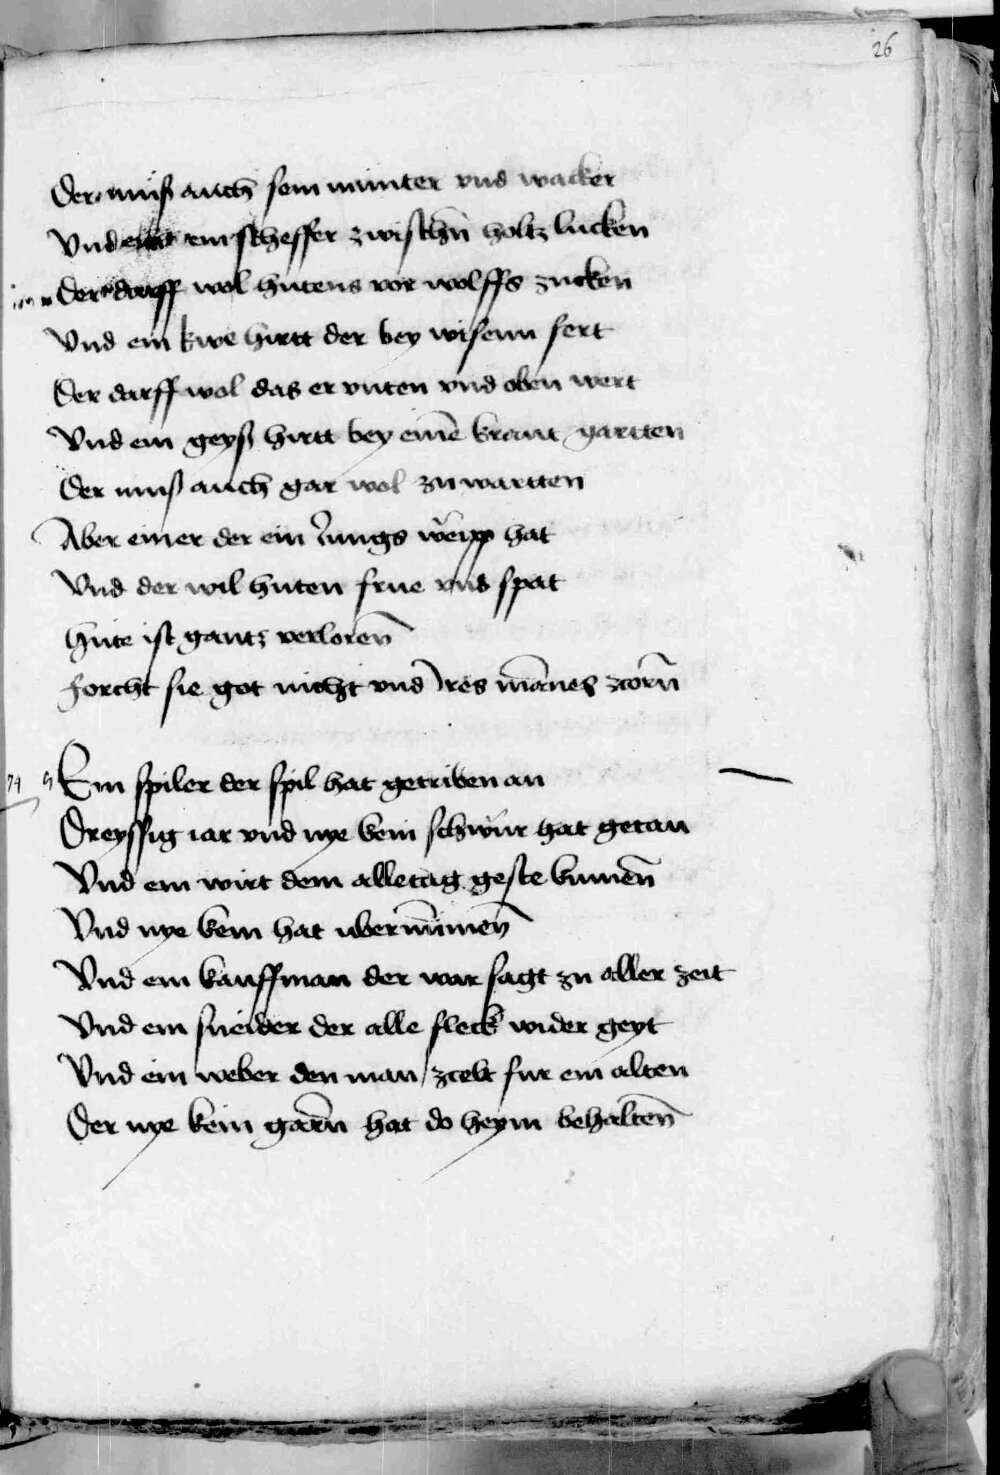 26
Der muß auch sein munter vnd wacker
Vnd ein scheffer zwischn̄ holtz lucken
Der darff wol hutens vor wolffs zucken
Vnd ein kwe hirtt der bey wisenn fert
Der darff wol das er vnten vnd oben wert
Vnd ein geyß hirtt bey eine͂ kraut gartten
Der muß auch gar wol zu wartten
Aber einer der ein iungs weipp hat
Vnd der wil huten frue vnd spat
Hute ist gantz verloren̄
Forcht sie got nicht vnd Ires ma͂nes zcorn̄
74 Ein spiler der spil hat getriben an
Dreyssig iar vnd nye kein schwur hat getan
Vnd ein wirt dem alletag geste kumen̄
Vnd nye kein hat vbernu͂men̄
Vnd ein kauffman der war sagt zu aller zeit
Vnd ein sneider der alle fleck wider geyt
Vnd ein weber den man zcelt fur ein alten
Der nye kein garn̄ hat do heym behalten̄